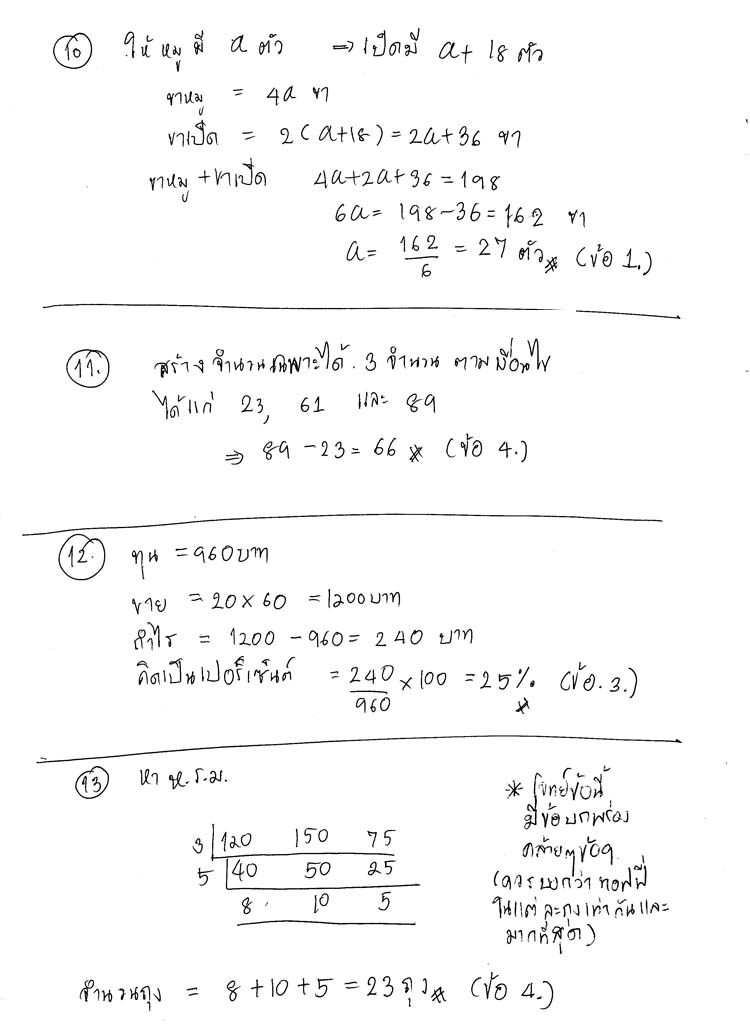 10 ให้ หมู มี a ตัว ⇒ เป็ดมี a + 18 ตัว
ขาหมู = 4a ขา
ขาเป็ด = 2(a+18) = 2a+36 ขา
ขาหมู + ขาเป็ด 4a+2a+36 = 198
6a = 198-36 = 162 ขา
a = 162/6 = 27 ตัว* (ข้อ 1.)
11. สร้างจำนวนเฉพาะได้. 3 จำนวน ตามเงื่อนไข
ได้แก่ 23, 61 และ 89
⇒ 89 - 23 = 66 * (ข้อ 4.)
12. ทุน = 960 บาท
ขาย = 20 × 60 = 1200 บาท
กำไร = 1200 - 960 = 240 บาท
คิดเป็นเปอร์เซ็นต์ = 240/960 × 100 = 25% * (ข้อ. 3.)
13 หา ห.ร.ม.
3 120 150 75
5 40 50 25
8 10 5
* โจทย์ข้อนี้
มีข้อบกพร่อง
คล้ายๆข้อ9
(ควรบอกว่า ทอฟฟี่
ในแต่ละถุงเท่ากันและ
มากที่สุด)
จำนวนถุง = 8 + 10 + 5 = 23 ถุง* (ข้อ 4.)